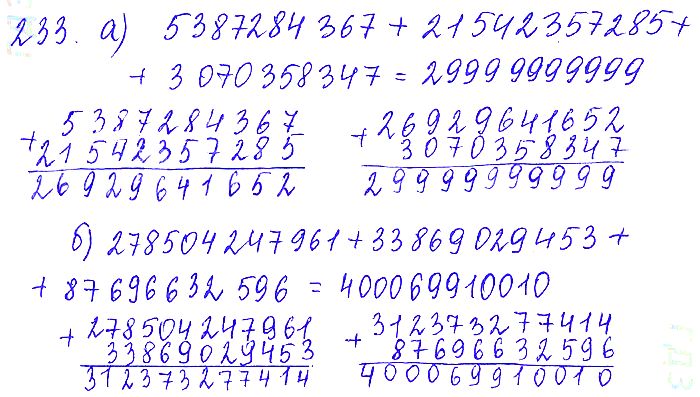 233. а) 5387284367 + 21542357285 +
+ 3070358347 = 29999999999
+ 5387284367
21542357285
26929641652
+ 26929641652
3070358347
29999999999
б) 278504247961 + 33869029453 +
+ 87696632596 = 400069910010
+ 278504247961
33869029453
312373277414
+ 312373277414
87696632596
400069910010